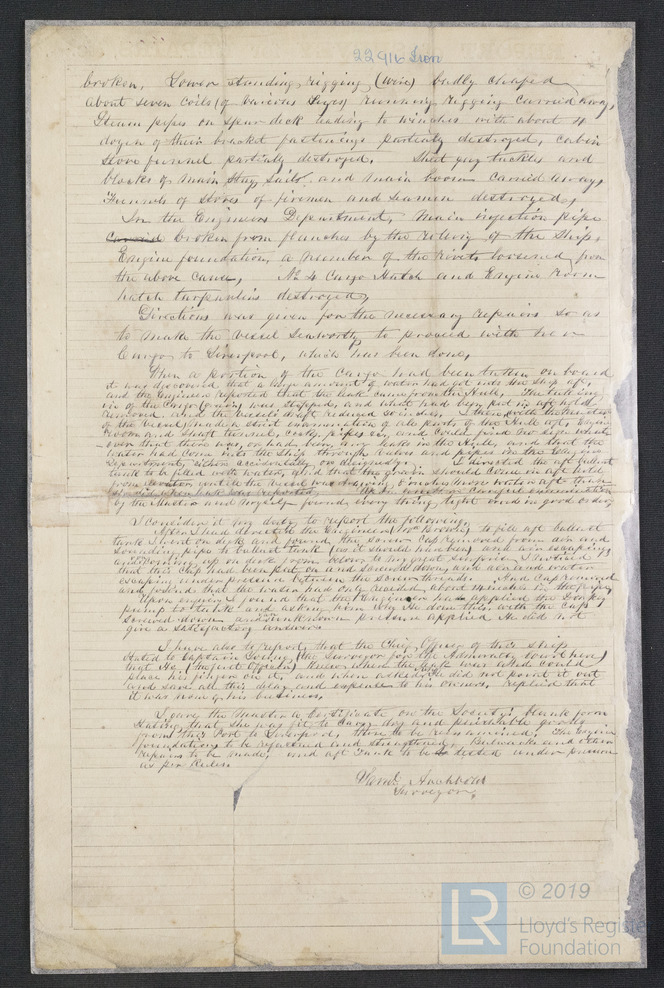 22916 Iron
broken, Lower standing rigging (wire) badly chafed
About seven coils (of various sizes) running rigging carried away,
Steam pipes on Spar deck leading to winches with about 4
dozen of their bracket fastenings partially destroyed, Cabin
Stove funnel partially destroyed, guy tackles and
blocks of Main Stay Sails, and main boom carried away,
Funnels of Stoves of firemen and Seamen destroyed,
In the Engineers Department, Main injection pipe
carried broken from flanches by the rolling of the Ship,
Engine foundation, a number of the rivets loosened from
the above cause, No 4 Cargo Hatch and Engine Room
hatch tarpaulins destroyed,
Directions was given for the necessary repairs so as
to make the vessel Seaworthy to proceed with her
Cargo to Liverpool, which has been done,
When a portion of the Cargo had been taken on board
it was discovered that a large amount of water had got into the Ship aft,
and the Engineer reported that the leak came from the Hull, The taking
in of the Cargo was stopped, and what had been put in aft hold
removed, and the vessel's draft reduced
of the vessel made a strict examination of all parts of the Hull aft, Engine
room and Shaft tunnel, and could find no sign what
ever that there was, or had been any leaks in the Hull, and that the
water had come into the Ship through valves and pipes in the Engine
Department, either accidentally or designedly. I directed the aft ballast
tank to be filled with water, and that the grain should come in aft hold
from elevator until the vessel was drawing 6 inches more water aft than
she did when leak was reported, careful examination
by the Master and myself found every thing tight and in good order,
I consider it my duty to report the following,
After I had directed the Engineer to fill aft ballast
tank I went on deck and found the screw cap removed from
sounding pipe to ballast tank (as it should have been) and air escaping
and coming up on deck from below to my great surprise I noticed
that this Cap had been put on and screwed down, and air and water
escaping under pressure between the screw threads. Had Cap removed
and found that the water had only receded about 14 inches in the pipe
Upon enquiry I found that the Engineer had applied the Donkey
pump to tank and asking him why he done this with the Cap
screwed down and pressure applied He did not
give a satisfactory answer.
I have also to report, that the Chief Officer of this Ship
stated to Captain (the Surveyor for the Admiralty Court here)
that He (the first Officer) knew where the leak was and could
place his finger on it, and when asked why He did not point it out
and save all this delay and expense to his owners, replied that
it was none of his business,
I gave the Master a Certificate on the Society's blank form
stating that she was fit to carry dry and perishable goods
from this Port to Liverpool, there to be re-examined, The Engine
foundations to be refastened and strengthened, Bulwarks and other
repairs to be made, and aft Tank to be tested under pressure
as per Rules.
Surveyor,
© 2019
LR
Lloyd's Registe
Foundation